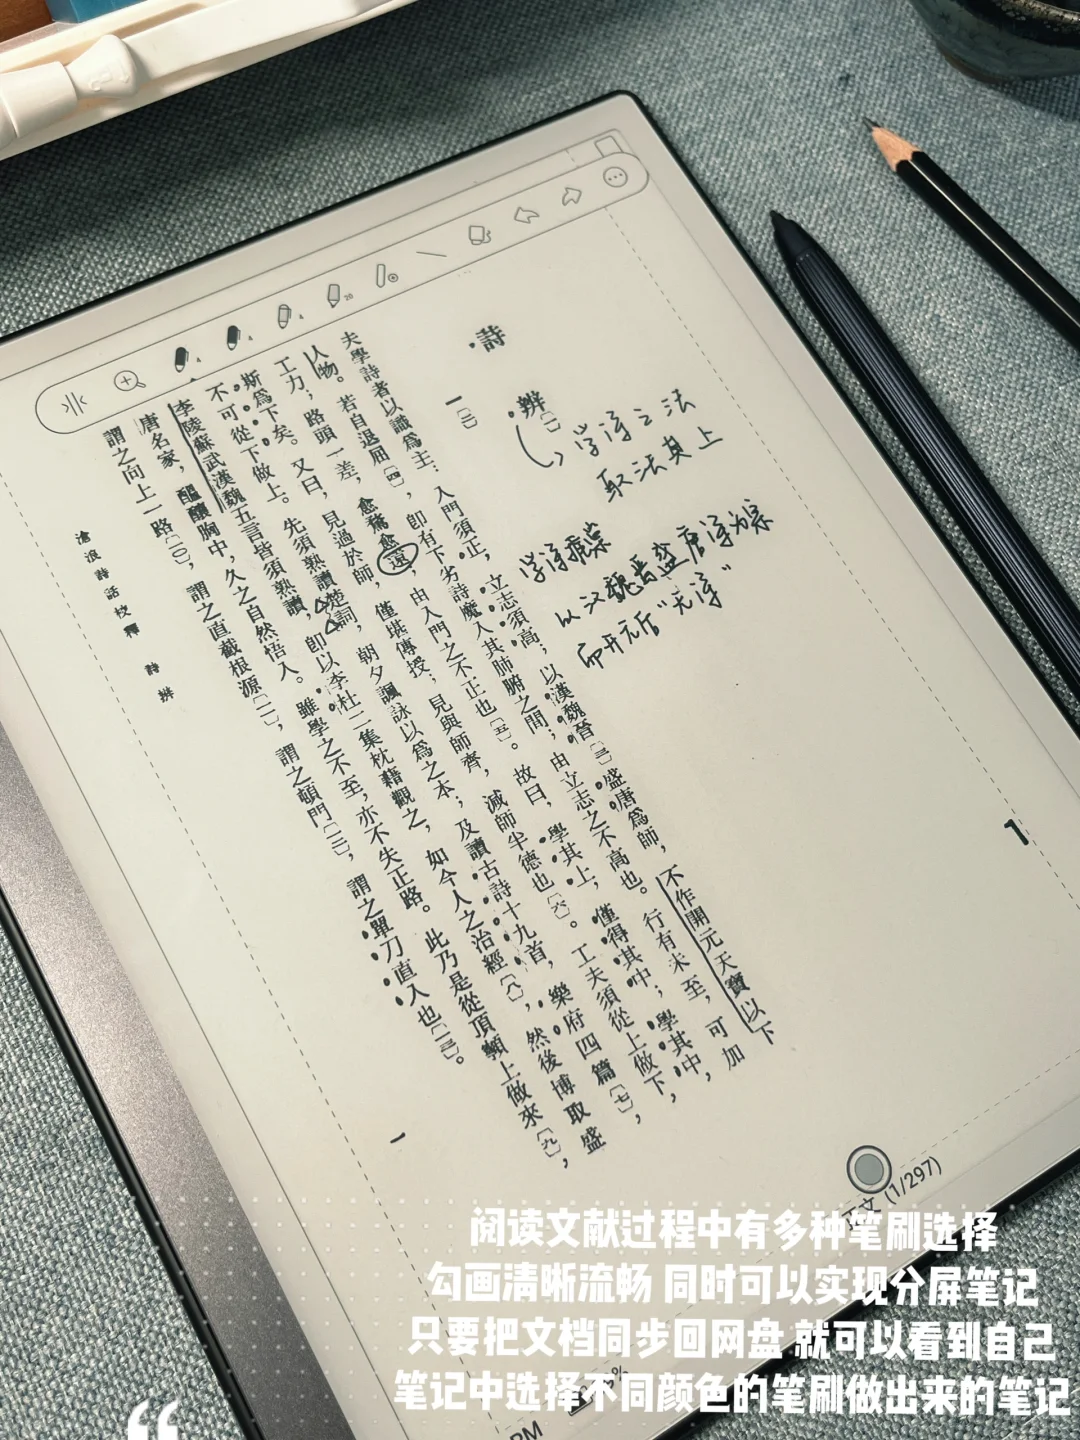 詩辨〔一〕
学诗之法
取法其上
以汉魏晋盛唐诗为宗
而开元后“无诗”
一〔二〕
夫學詩者以識爲主：入門須正，立志須高；以漢魏晉〔三〕盛唐爲師，不作開元天寶以下
人物。若自退屈〔四〕，卽有下劣詩魔入其肺腑之間；由立志之不高也。行有未至，可加
工力；路頭一差，愈騖愈遠，由入門之不正也〔五〕。故曰，學其上，僅得其中；學其中，
斯爲下矣。又曰，見過於師，僅堪傳授，見與師齊，減師半德也〔六〕。工夫須從上做下，
不可從下做上。先須熟讀楚詞，朝夕諷詠以爲之本；及讀古詩十九首，樂府四篇〔七〕，
李陵蘇武漢魏五言皆須熟讀，卽以李杜二集枕藉觀之，如今人之治經〔八〕，然後博取盛
唐名家，醞釀胸中，久之自然悟入。雖學之不至，亦不失正路。此乃是從頂𩕳上做來〔九〕，
謂之向上一路〔一〇〕，謂之直截根源〔一一〕，謂之頓門〔一二〕，謂之單刀直入也〔一三〕。
滄浪詩話校釋　詩辨
一
1
正文 (1/297)
阅读文献过程中有多种笔刷选择
勾画清晰流畅 同时可以实现分屏笔记
只要把文档同步回网盘 就可以看到自己
笔记中选择不同颜色的笔刷做出来的笔记
PM